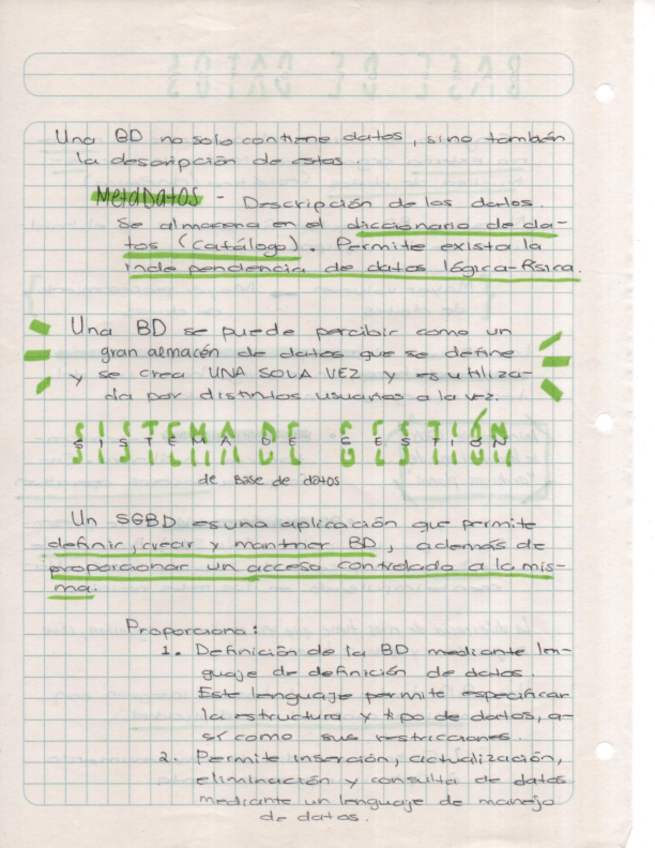 Una BD no solo contiene datos, sino también
la descripción de estos.
MetaDatos - Descripción de los datos.
Se almacena en el diccionario de da-
tos (catálogo). Permite exista la
independencia de datos lógica-física.
Una BD se puede percibir como un
gran almacén de datos que se define
y se crea UNA SOLA VEZ y es utiliza-
da por distintos usuarios a la vez.
SISTEMA DE GESTIÓN
de Base de datos
Un SGBD es una aplicación que permite
definir, crear y mantner BD, además de
proporcionar un acceso controlado a la mis-
ma.
Proporciona:
1. Definición de la BD mediante len-
guaje de definición de datos.
Este lenguaje permite especificar
la estructura y tipo de datos, a-
sí como sus restricciones.
2. Permite inserción, actualización,
eliminación y consulta de datos
mediante un lenguaje de manejo
de datos.